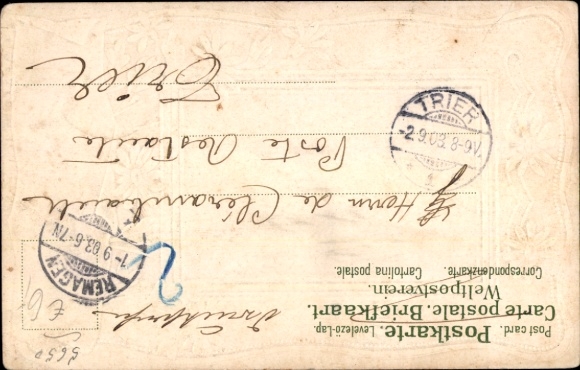 Post card. Postkarte. Levelező-Lap.
Carte postale. Briefkaart.
Weltpostverein.
Correspondenzkarte. Cartolina postale.
REMAGEN
1-9 03.6-7N.
Herrn de Clérambault
Poste Restante
Trier
TRIER
-2.9.03.8-9V.
2
€6
5650